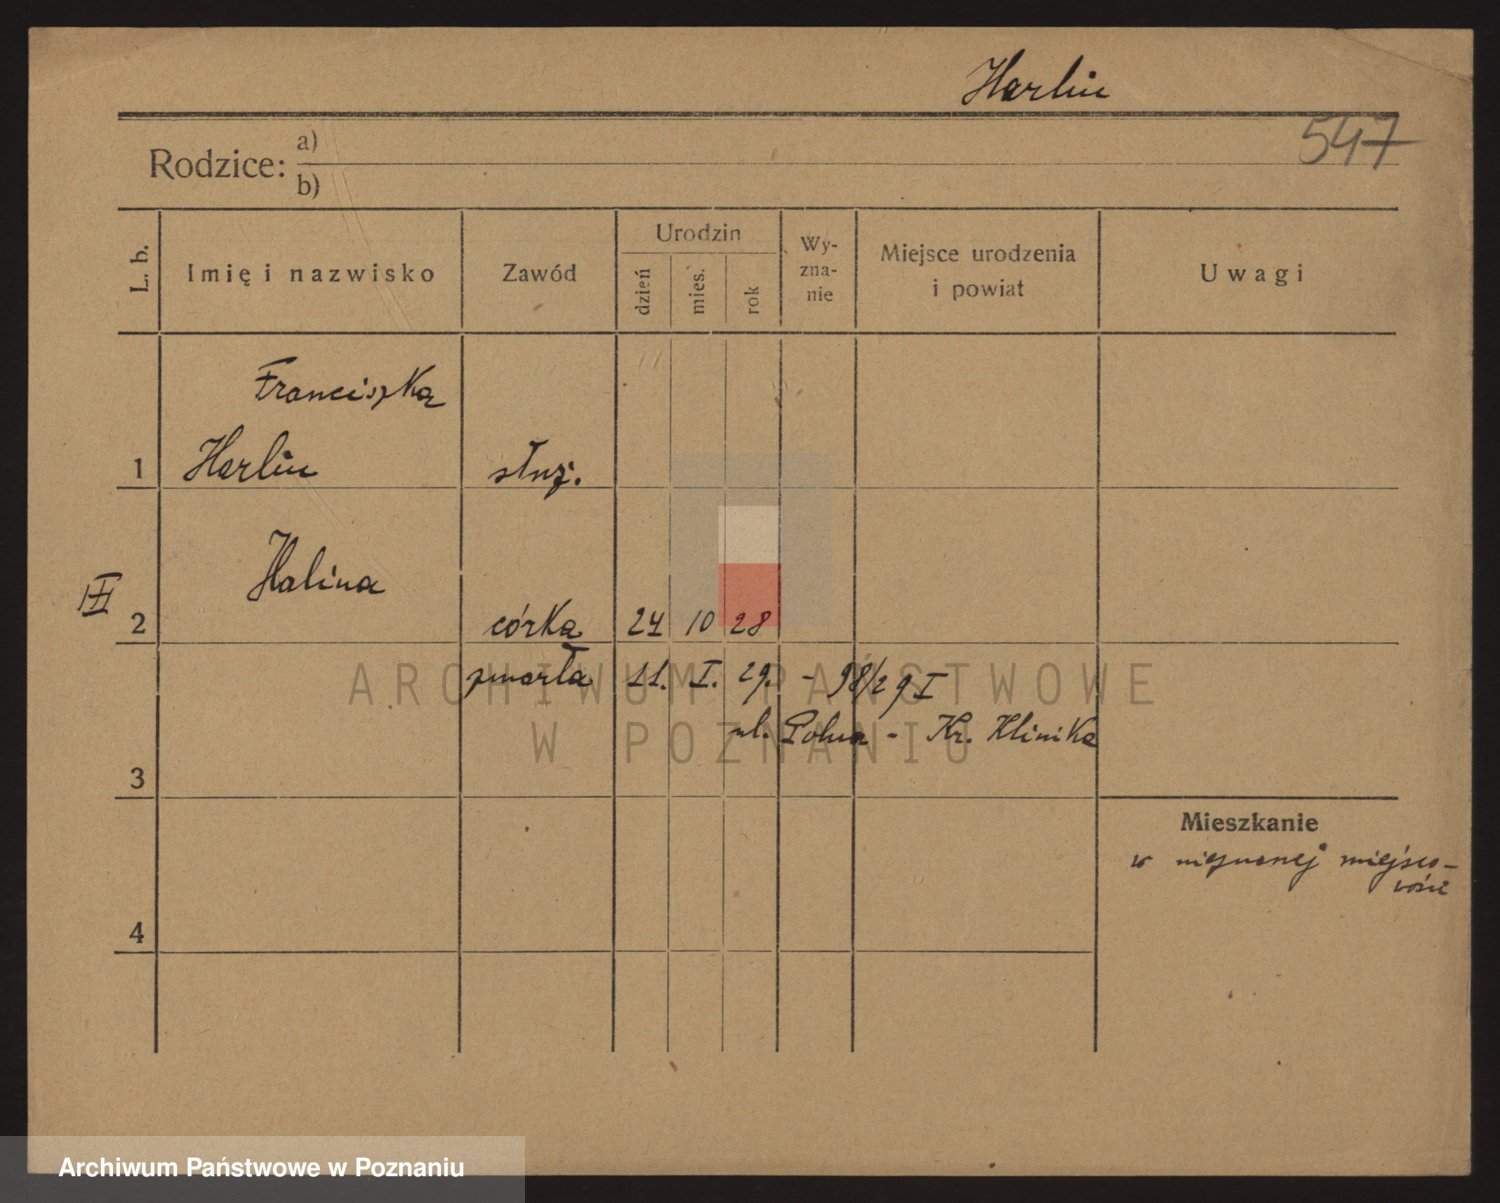 Harlin
547
Rodzice: a)
b)
L. b.
Imię i nazwisko
Zawód
Urodzin
dzień
mies.
rok
Wy-
zna-
nie
Miejsce urodzenia
i powiat
Uwagi
Franciszka
1 Harlin służ.
Halina
III 2 córka 24 10 28
zmarła 11. I. 29. - 98/29 I
ul. Polna - Kr. Klinika
3
Mieszkanie
w nieznanej miejsco-
wości
4
ARCHIWUM PAŃSTWOWE
W POZNANIU
Archiwum Państwowe w Poznaniu